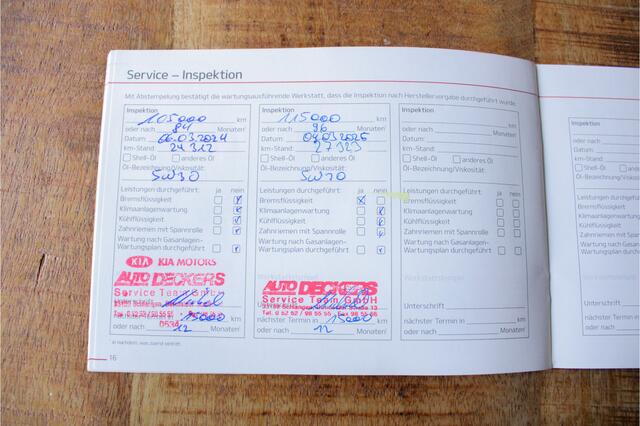 Service – Inspektion
Mit Abstempelung bestätigt die wartungsausführende Werkstatt, dass die Inspektion nach Herstellervorgabe durchgeführt wurde.
Inspektion
105000 km
oder nach 84 Monaten
Datum 06.03.2024
km-Stand 24312
Shell-Öl anderes Öl
Öl-Bezeichnung/Viskosität:
5W30
Leistungen durchgeführt: ja nein
Bremsflüssigkeit
Klimaanlagenwartung
Kühlflüssigkeit
Zahnriemen mit Spannrolle
Wartung nach Gasanlagen-
Wartungsplan durchgeführt
KIA KIA MOTORS
AUTO DECKERS
Service Team GmbH
15000 km
oder nach 12 Monaten
0534
Inspektion
115000 km
oder nach 96 Monaten
Datum 04.03.2025
km-Stand 27323
Shell-Öl anderes Öl
Öl-Bezeichnung/Viskosität:
Leistungen durchgeführt: ja nein
Bremsflüssigkeit
Klimaanlagenwartung
Kühlflüssigkeit
Zahnriemen mit Spannrolle
Wartung nach Gasanlagen-
Wartungsplan durchgeführt
AUTO DECKERS
Service Team GmbH
nächster Termin in 15000 km
oder nach 12 Monaten
Inspektion
km
oder nach Monaten
Datum
km-Stand
Shell-Öl anderes Öl
Öl-Bezeichnung/Viskosität:
Leistungen durchgeführt: ja nein
Bremsflüssigkeit
Klimaanlagenwartung
Kühlflüssigkeit
Zahnriemen mit Spannrolle
Wartung nach Gasanlagen-
Wartungsplan durchgeführt
Werkstattstempel
Unterschrift
nächster Termin in km
oder nach Monaten
16
Inspektion
oder nach
Datum
km-Stand
Shell-Öl
Öl-Bezeichnung/
Leistungen durchgeführt
Bremsflüssigkeit
Klimaanlagenwartung
Kühlflüssigkeit
Zahnriemen mit
Wartung nach
Wartungsplan
Unterschrift
nächster Termin
oder nach